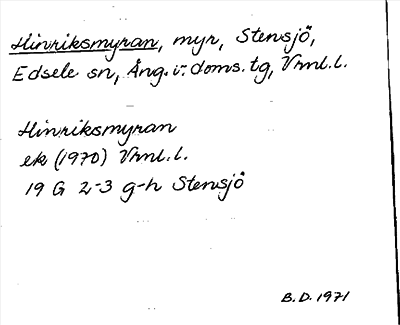 Hinriksmyran, myr, Stensjö,
Edsele sn, Ång. v. doms. tg, Vrnl. l.
Hinriksmyran
ek (1970) Vrnl. l.
19 G 2-3 g-h Stensjö
B. D. 1971